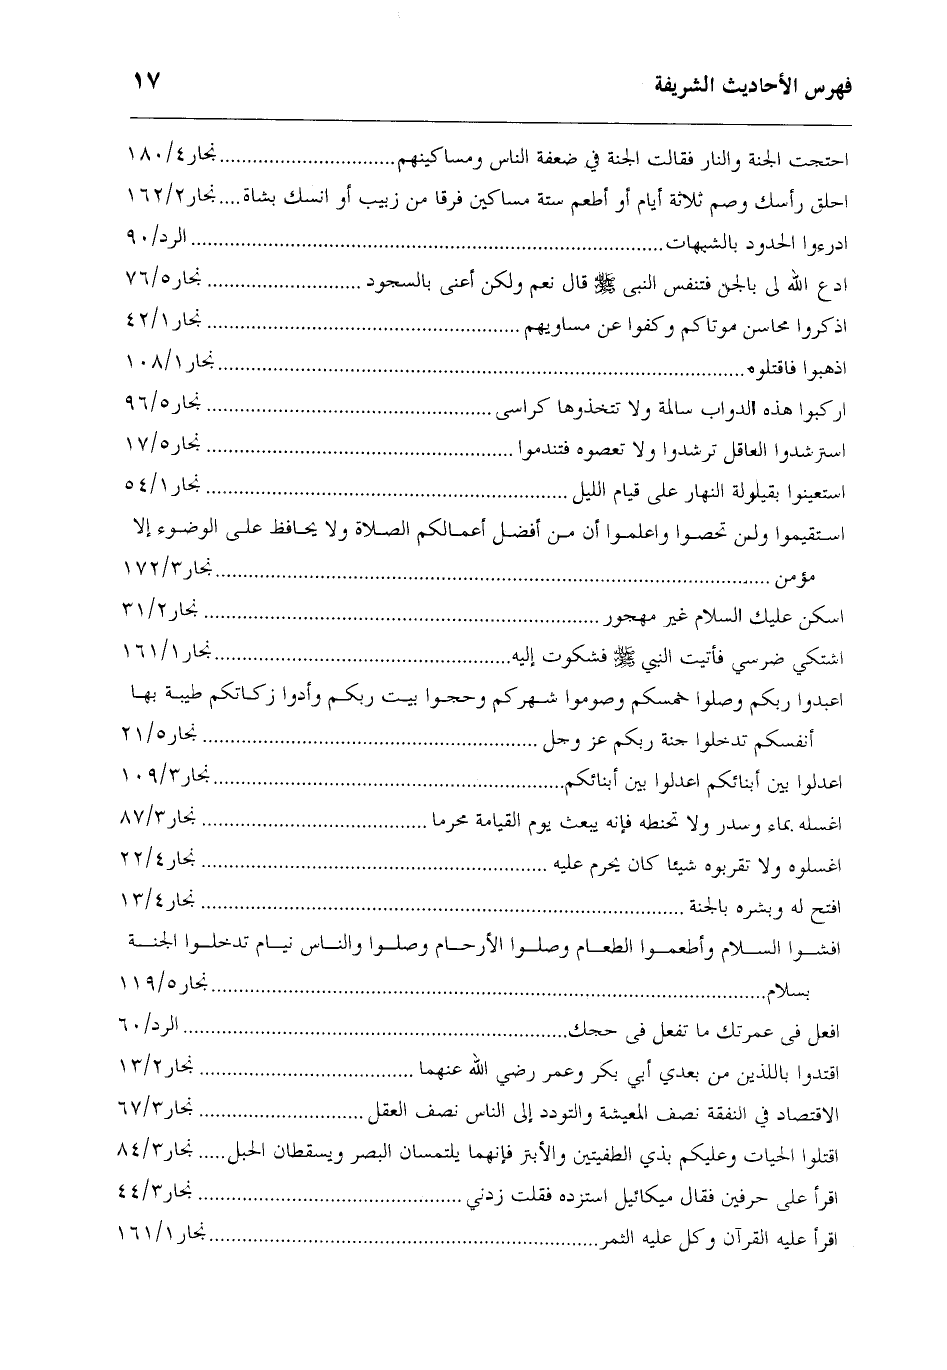 فهرس الأحاديث الشريفة ١٧
احتجت الجنة والنار فقالت الجنة في ضعفة الناس ومساكينهم.................................نجار٤/١٨٠
احلق رأسك وصم ثلاثة أيام أو أطعم ستة مساكين فرقا من زبيب أو انسك بشاة....نجار٢/١٦٢
ادرءوا الحدود بالشبهات.....................................................................................الرد/٩٠
ادع الله لى بالجن فتنفس النبى ﷺ قال نعم ولكن أعنى بالسجود ............................نجار٥/٧٦
اذكروا محاسن موتاكم وكفوا عن مساويهم ........................................................نجار١/٤٢
اذهبوا فاقتلوه................................................................................................نجار١/١٠٨
اركبوا هذه الدواب سالمة ولا تتخذوها كراسى....................................................نجار٥/٩٦
استرشدوا العاقل ترشدوا ولا تعصوه فتندموا .......................................................نجار٥/١٧
استعينوا بقيلولة النهار على قيام الليل .................................................................نجار١/٥٤
استقيموا ولن تحصوا واعلموا أن من أفضل أعمالكم الصلاة ولا يحافظ على الوضوء إلا
مؤمن ....................................................................................................نجار٣/١٧٢
اسكن عليك السلام غير مهجور .......................................................................نجار٢/٣١
اشتكي ضرسي فأتيت النبي ﷺ فشكوت إليه......................................................نجار١/١٦١
اعبدوا ربكم وصلوا خمسكم وصوموا شهركم وحجوا بيت ربكم وأدوا زكاتكم طيبة بها
أنفسكم تدخلوا جنة ربكم عز وجل ............................................................نجار٥/٢١
اعدلوا بين أبنائكم اعدلوا بين أبنائكم...............................................................نجار٣/١٠٩
اغسله بماء وسدر ولا تحنطه فإنه يبعث يوم القيامة محرما .........................................نجار٣/٨٧
اغسلوه ولا تقربوه شيئا كان يحرم عليه ..............................................................نجار٤/٢٢
افتح له وبشره بالجنة .......................................................................................نجار٤/١٣
افشوا السلام وأطعموا الطعام وصلوا الأرحام وصلوا والناس نيام تدخلوا الجنة
بسلام....................................................................................................نجار٥/١١٩
افعل فى عمرتك ما تفعل فى حجك.....................................................................الرد/٦٠
اقتدوا باللذين من بعدي أبي بكر وعمر رضي الله عنهما .......................................نجار٢/١٣
الاقتصاد في النفقة نصف المعيشة والتودد إلى الناس نصف العقل ..............................نجار٣/٦٧
اقتلوا الحيات وعليكم بذي الطفيتين والأبتر فإنهما يلتمسان البصر ويسقطان الحبل.....نجار٣/٨٤
اقرأ على حرفين فقال ميكائيل استزده فقلت زدني ................................................نجار٣/٤٤
اقرأ عليه القرآن وكل عليه الثمر.......................................................................نجار١/١٦١